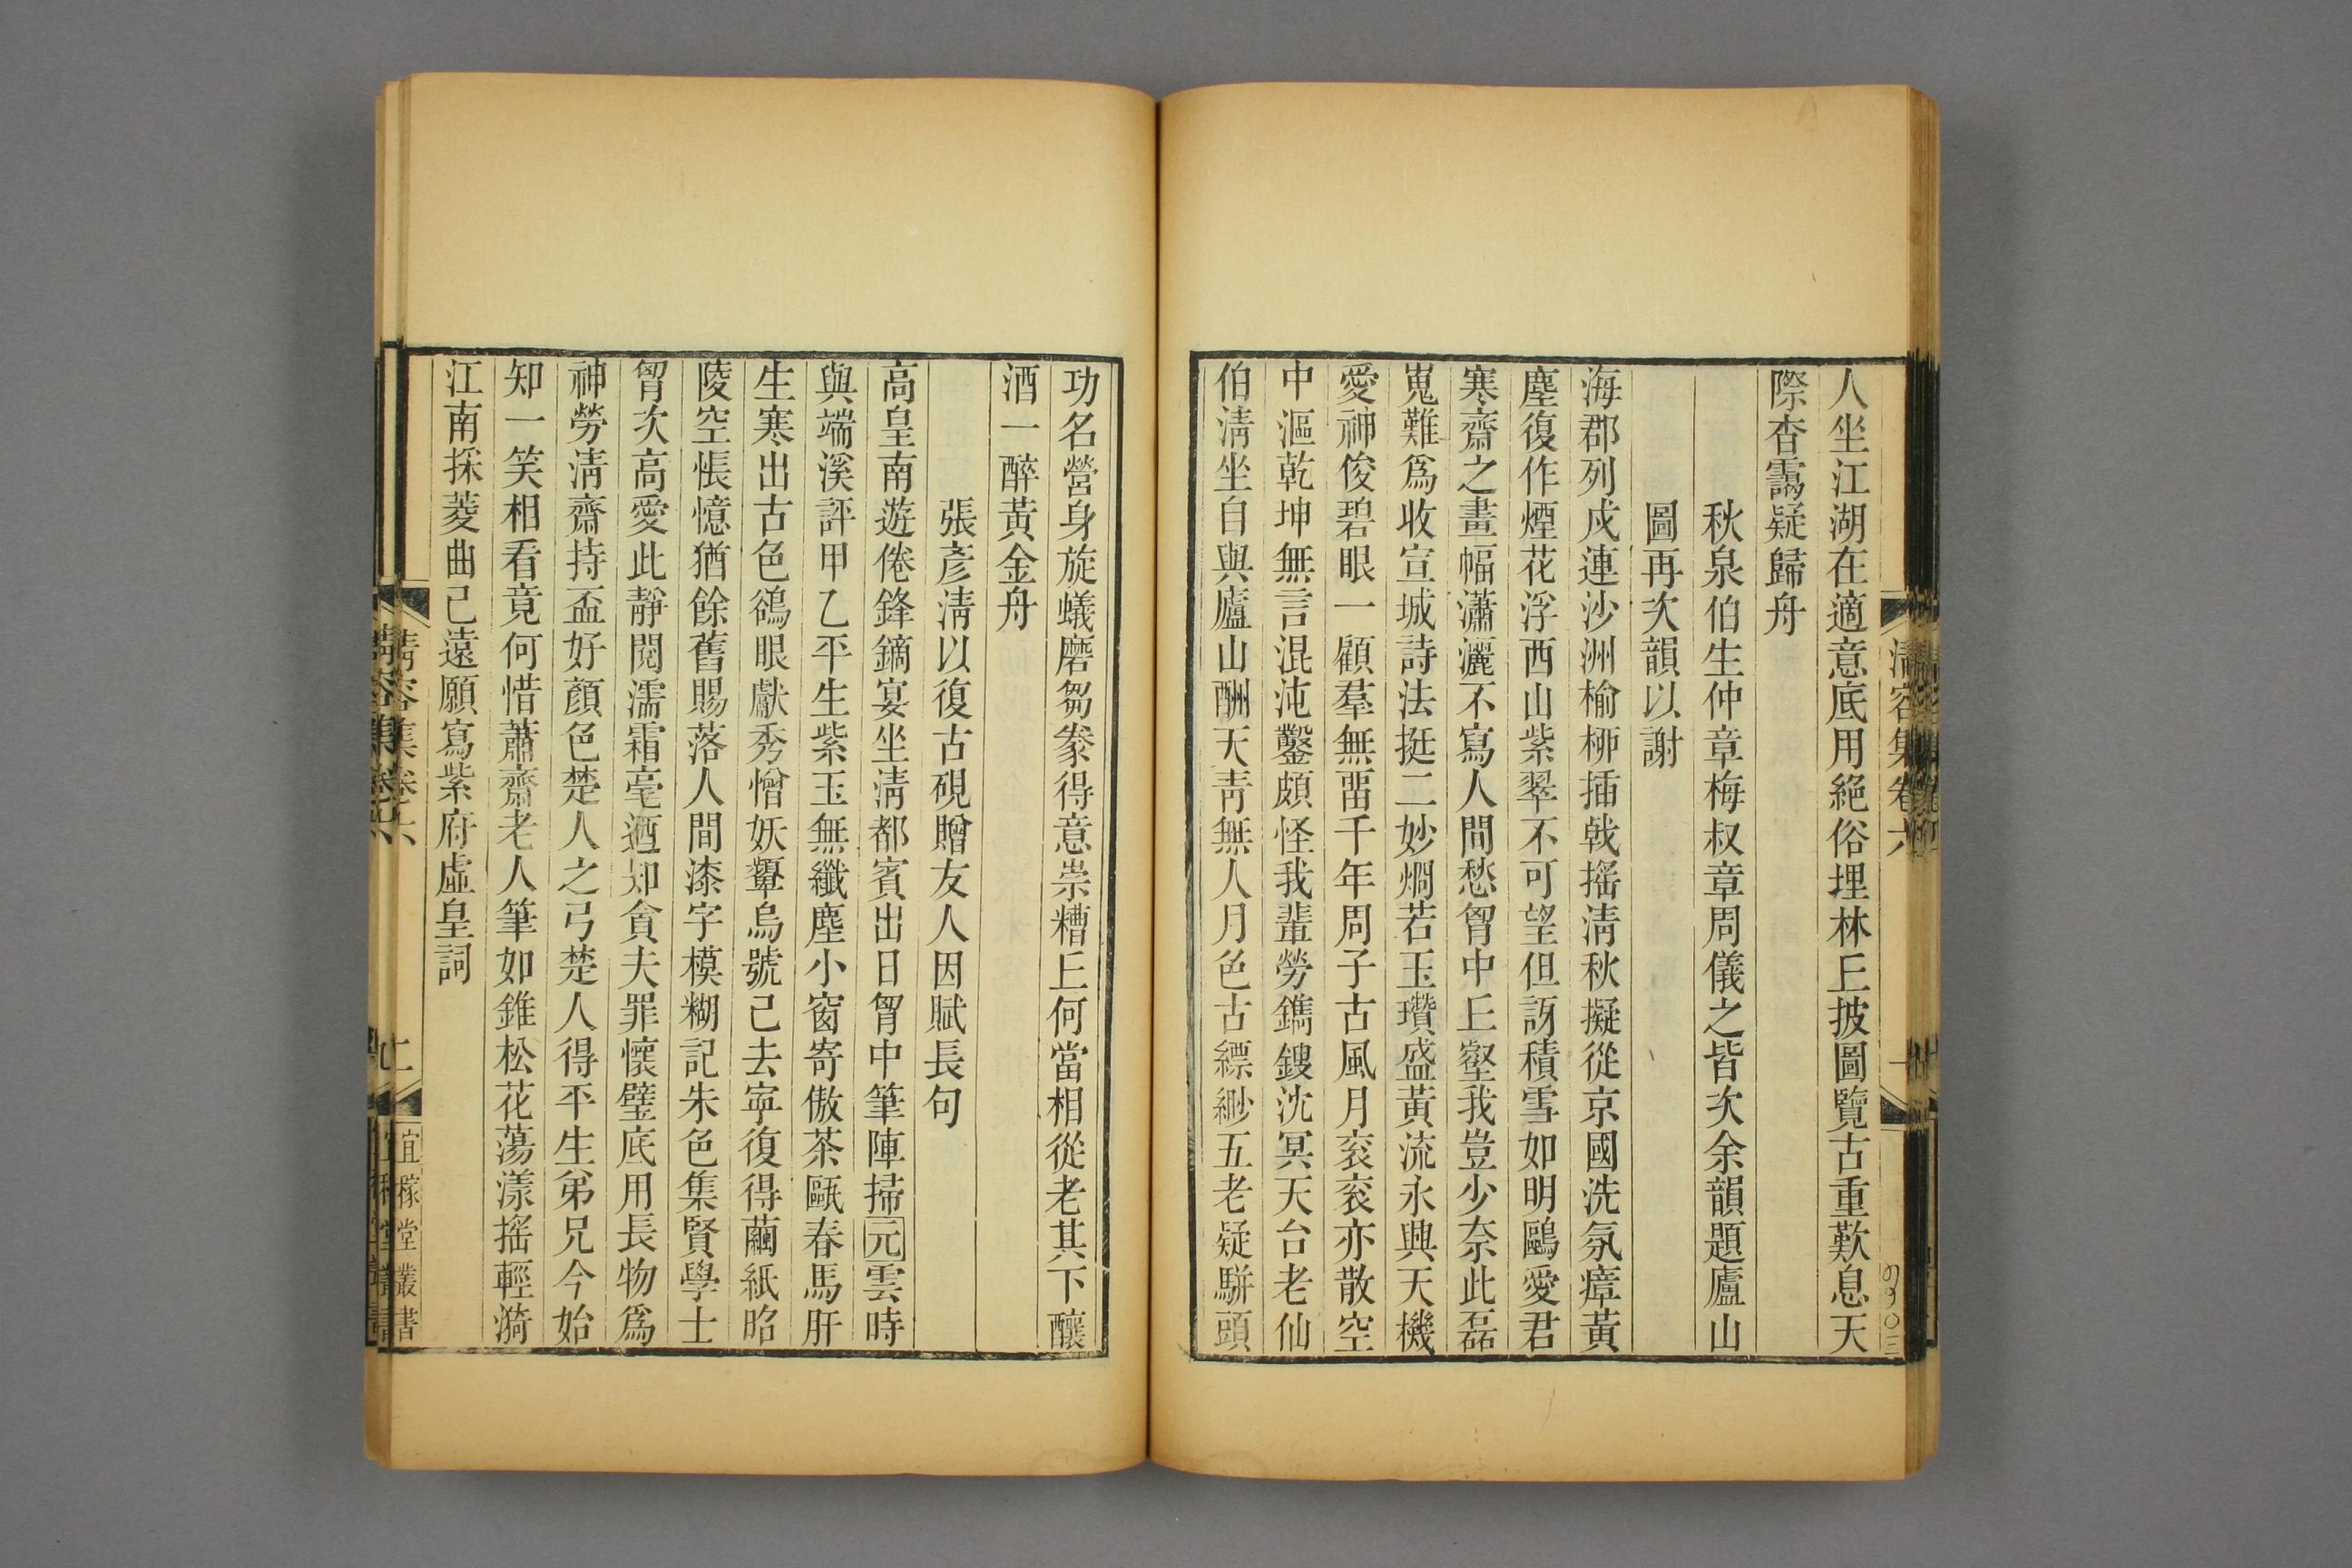 人坐江湖在適意底用絕俗埋林丘披圖覽古重歎息天
際杳靄疑歸舟
秋泉伯生仲章梅叔章周儀之皆次余韻題廬山
圖再次韻以謝
海郡列戍連沙洲榆桺插戟搖淸秋擬從京國洗氛瘴黃
塵復作煙花浮西山紫翠不可望但訝積雪如明鷗愛君
寒齋之畫幅瀟灑不寫人間愁胷中丘壑我豈少奈此磊
嵬難爲收宣城詩法挺二妙烱若玉瓚盛黃流永興天機
愛神俊碧眼一顧羣無畱千年周子古風月衮衮亦散空
中漚乾坤無言混沌鑿頗怪我輩勞鐫鎪沈冥天台老仙
伯淸坐自與廬山酬天靑無人月色古縹緲五老疑駢頭
功名營身旋蟻磨芻豢得意崇糟丘何當相從老其下釀
酒一醉黃金舟
張彥淸以復古硯贈友人因賦長句
高皇南遊倦鋒鏑宴坐淸都賓出日胷中筆陣掃元雲時
與端溪評甲乙平生紫玉無纖塵小窗寄傲茶甌春馬肝
生寒出古色鵒眼獻秀憎妖顰烏號已去寧復得繭紙昭
陵空悵憶猶餘舊賜落人間漆字模糊記朱色集賢學士
胷次高愛此靜閱濡霜毫迺知貪夫罪懷璧底用長物爲
神勞淸齋持盃好顏色楚人之弓楚人得平生弟兄今始
知一笑相看竟何惜蕭齋老人筆如錐松花蕩漾搖輕漪
江南採菱曲已遠願寫紫府虛皇詞
淸容集卷六
宜稼堂叢書